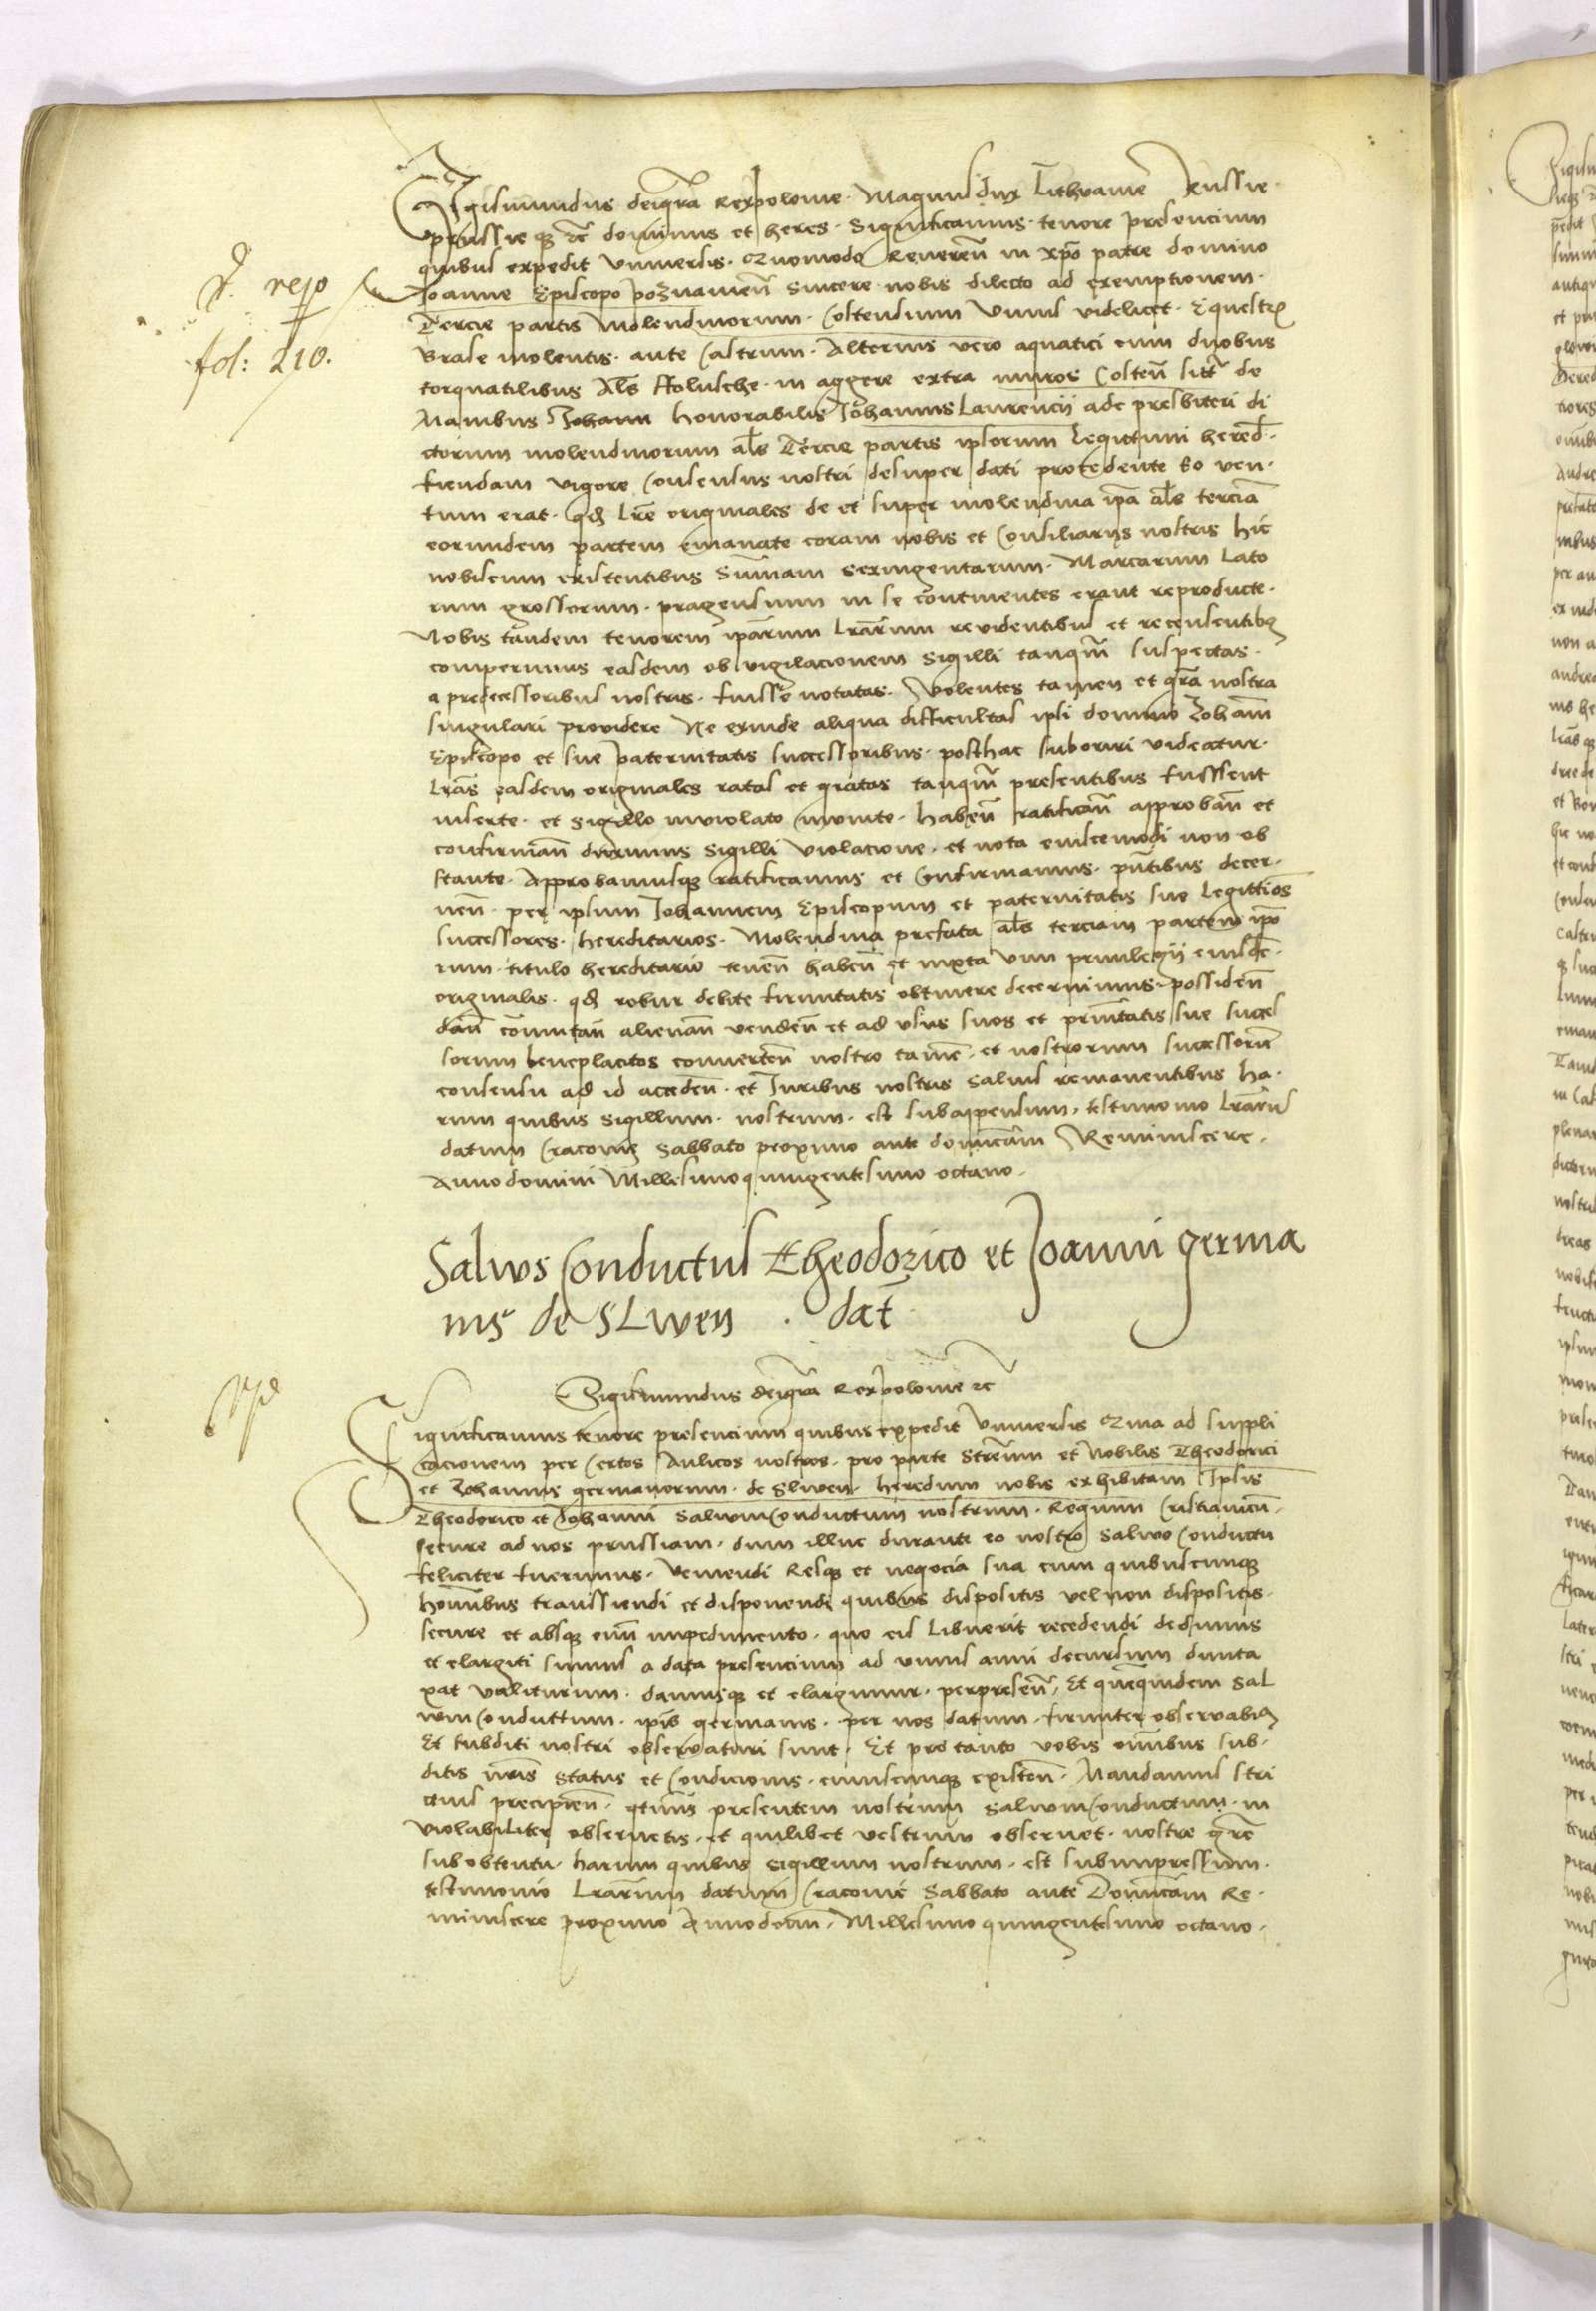 Sigismundus dei gr̃a Rex polonie. Magnus dux Lithvanie Russie.
prussie qȝ etc̃ dominus et heres. Significamus. tenore presencium
quibus expedit Vniuersis. Quomodo Reuereñ in xp̃o patre domino
Ioanne Episcopo poznanieñ sincere nobis dilecto ad exemptionem.
Tercie partis molendinorum. Costensium Vnius videlicet. Equestris
brase molentis. ante Castrum. Alterius vero aquatici cum duobus
torquatilibus Al̃s ffolusche. in aggere extra muros Costeñ sitt̃ de
Manibus Iohann honorabilis Iohannis Laurencii adc presbiteri di
ctorum molendinorum al̃s Tercie partis ipsorum Legittimi hered̃.
fiendam vigore Consensus nostri desuper dati procedente Eo ven.
tum erat. qđ Lr̃e originales de et super molendina ip̃a al̃s tercia̅
eorundem partem emanate coram nobis et Consiliariis nostris hic
nobiscum existentibus Sum̃am sexingentarum. Marcarum Lato
rum grossorum. pragensium in se continentes erant reproducte.
Nobis tandem tenorem ip̃arum Lr̃arum revidentibus et recensentibȝ
comperimus easdem ob vigilacionem sigilli tanq̃m suspectas.
a predecessoribus nostris. fuisse notatas. Volentes tamen et gr̃a nostra
singulari providere Ne exinde aliqua difficultas ipsi domino Iohañ
Episcopo et sue paternitatis successoribus. posthac suboriri videatur.
Lr̃as easdem originales ratas et gratas tanq̃m presentibus fuissent
inserte. et sigillo inviolato munite. habeñ ratificañ approbañ et
confirmañ duximus sigilli violacione. et nota euiscemodi non ob
stante. Approbamusqȝ ratificamus et Confirmamus. pñtibus decer.
neñ. per ipsum Iohannem Episcopum et paternitatis sue Legittĩos
successores. hereditarios. Molendina prefata al̃s terciam partem ip̃o
rum. titulo hereditario teneñ habeñ et iuxta vim priuilegii eiusdẽ.
originalis. qđ robur debite firmitatis obtinere decernimus. possideñ
dañ com̃utañ alienañ vendeñ et ad vsus suos et pr̃nitatis sue succes
sorum beneplacitos converteñ nostro tamẽ. et nostrorum successorũ
consensu ad id accedeñ. et Iuribus nostris salvis remanentibus ha.
rum quibus sigillum. nostrum. est subappensum. testimonio Lr̃arũ
datum Cracovie Sabbato proximo ante dom̃icam Reminiscere.
Anno domini Millesimo quingentesimo octavo.
Salvus Conductus Theodorico et Joanni germa
nis de SLwen . dat̃
Sigismundus dei gr̃a Rex polonie etc̃
Significamus tenore presencium quibus expedit Vniuersis Quia ad suppli
cacionem per Certos Aulicos nostros. pro parte Streñuum et Nobilis Theodorici
et Iohannis germanorum. de Sliwen. heredum nobis exhibitam Ipsis
Theodorico et Iohanni Salvumconductum nostrum. Regnum Cristianicũ.
secure ad nos prussiam. dum illuc durante eo nostro Salvo Conductu
feliciter fuerimus. Veniendi Resqȝ et negocia sua cum quibuscunqȝ
hom̃ibus transsiendi et disponendi quibus dispositis vel non dispositis.
secure et absqȝ om̃i impedimento. quo eis Libuerit recedendi dedimus
et elargiti sumus a data presencium ad vnius anni decursum dunta
xat valiturum. damusqȝ et elargimur. perpreseñ. Et quequidem sal
vum Conductum. ip̃is germanis. per nos datum. firmiter observabiȝ
Et subditi nostri observaturi sunt. Et pro tanto vobis om̃ibus sub.
ditis nr̃is status et Condicionis. cuiuscunqȝ existeñ. Mandamus stri
ctius precipieñ. qt̃nus presentem nostrum salvumconductum. in
violabiliter observetis. et quilibet vestrum observet. nostre gr̃e
sub obtentu. harum quibus sigillum nostrum. est subimpressum.
testimonio Lr̃arum datum Cracovie Sabbato ante Dom̃icam Re.
miniscere proximo Anno dom̃. Millesimo quingentesimo octavo.
fol: 210.